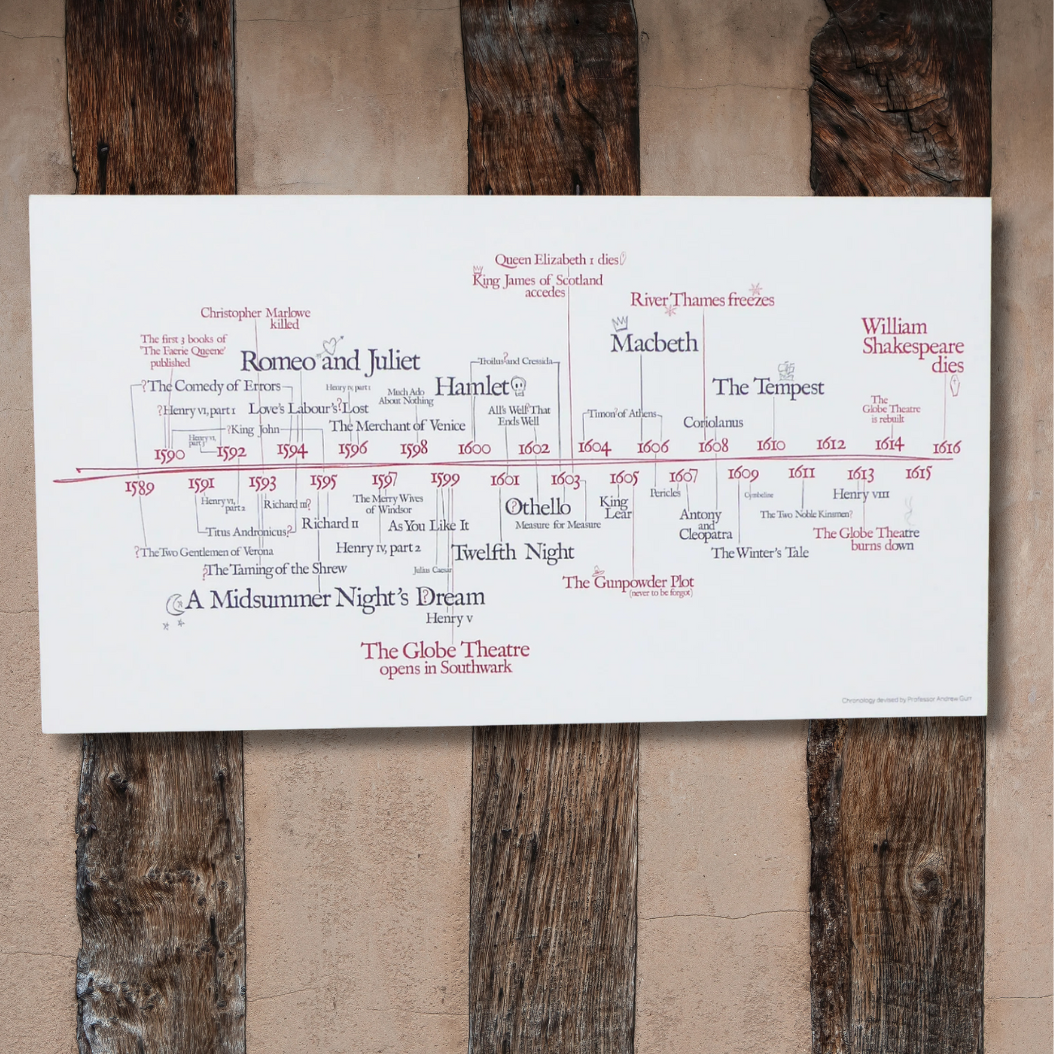 Queen Elizabeth 1 dies
King James of Scotland
accedes
River Thames freezes
Christopher Marlowe
killed
William
Shakespeare
dies
The first 3 books of
'The Faerie Queene'
published
Macbeth
Romeo and Juliet
?The Comedy of Errors
Henry IV, part 1
Much Ado
About Nothing
Hamlet
Troilus? and Cressida
The Tempest
?Henry VI, part 1
Love's Labour's? Lost
All's Well? That
Ends Well
Timon? of Athens
The
Globe Theatre
is rebuilt
?King John
The Merchant of Venice
Coriolanus
Henry VI,
part 3
1590
1592
1594
1596
1598
1600
1602
1604
1606
1608
1610
1612
1614
1616
1589
1591
1593
1595
1597
1599
1601
1603
1605
1607
1609
1611
1613
1615
Henry VI,
part 2
Richard III?
The Merry Wives
of Windsor
Othello
King
Lear
Pericles
Cymbeline
Henry VIII
Titus Andronicus?
Richard II
As You Like It
Measure for Measure
Antony
and
Cleopatra
The Two Noble Kinsmen?
The Globe Theatre
burns down
?The Two Gentlemen of Verona
Henry IV, part 2
Twelfth Night
The Winter's Tale
?The Taming of the Shrew
Julius Caesar
The Gunpowder Plot
(never to be forgot)
A Midsummer Night's Dream
?
Henry V
The Globe Theatre
opens in Southwark
Chronology devised by Professor Andrew Gurr